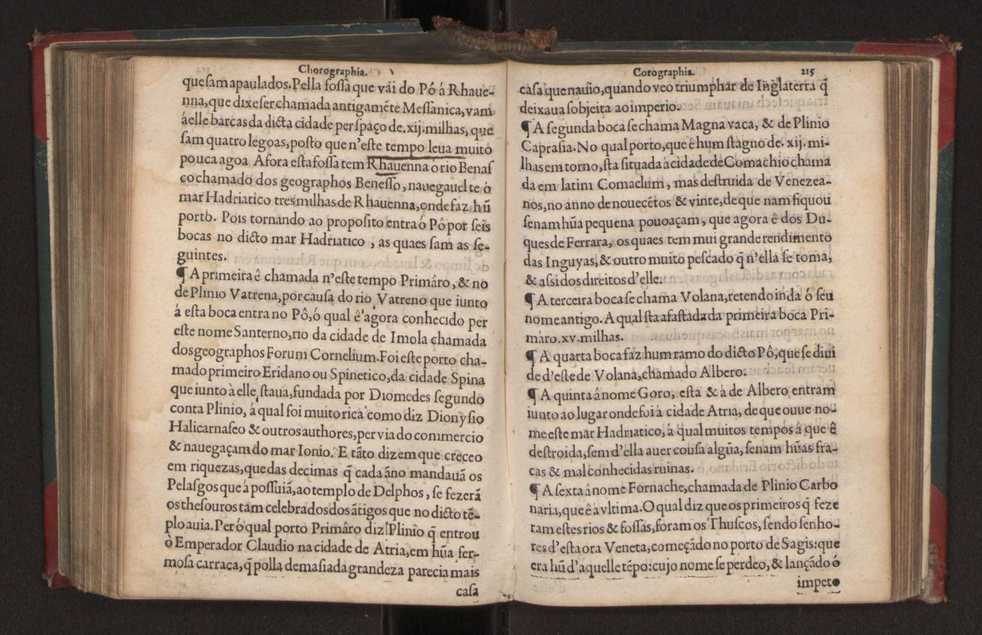 Chorographia.
que sam apaulados. Pella fossa que vái do Pó á Rhaue-
nna, que dixe ser chamada antigamẽte Messanica, vam
á elle barcas da dicta cidade per spaço de. xij. milhas, que
sam quatro legoas, posto que n'este tempo leua muito
pouca agoa Afora esta fossa tem Rhauenna o rio Benas
co chamado dos geographos Benesso, nauegauel te ò
mar Hadriatico tres milhas de Rhauenna, onde faz hũ
porto. Pois tornando ao proposito entra ó Pó por seis
bocas no dicto mar Hadriatico, as quaes sam as se-
guintes.
¶ A primeira ê chamada n'este tempo Primáro, & no
de Plinio Vatrena, por causa do rio Vatreno que iunto
á esta boca entra no Pô, ó qual é agora conhecido per
este nome Santerno, rio da cidade de Imola chamada
dos geographos Forum Cornelium. Foi este porto cha-
mado primeiro Eridano ou Spinetico, da cidade Spina
que iunto à elle staua, fundada por Diomedes segundo
conta Plinio, à qual foi muito rica como diz Dionysio
Halicarnaseo & outros authores, per via do commercio
& nauegaçam do mar Ionio. E tãto dizem que creceo
em riquezas, que das decimas q̃ cada áno mandauã os
Pelasgos que à possuiã, ao templo de Delphos, se fezerã
os thesouros tam celebrados dos ãtigos que no dicto tẽ-
plo auia. Per ó qual porto Primâro diz Plinio q̃ entrou
ò Emperador Claudio na cidade de Atria, em hũa fer-
mosa carraca, q̃ polla demasiada grandeza parecia mais
casa
Corographia. 215
casa que nauio, quando veo triumphar de Inglaterra q̃
deixaua sobjeita ao imperio.
¶ A segunda boca se chama Magna vaca, & de Plinio
Caprasia. No qual porto, que ê hum stagno de. xij. mi-
lhas em torno, sta situada à cidade de Comachio chama
da em latim Comaclum, mas destruida de Venezea-
nos, no anno de nouecẽtos & vinte, de que nam fiquou
senam hũa pequena pouoaçam, que agora ê dos Du-
ques de Ferrara, os quaes tem mui grande rendimento
das Inguyas, & outro muito pescado q̃ n'ella se toma,
& assi dos direitos d'elle.
¶ A terceira boca se chama Volana, retendo inda ó seu
nome antigo. A qual sta afastada da primeira boca Pri-
máro. xv. milhas.
¶ A quarta boca faz hum ramo do dicto Pô, que se diui
de d'este de Volana, chamado Albero.
¶ A quinta â nome Goro, esta & à de Albero entram
iunto ao lugar onde foi à cidade Atria, de que ouue no-
me este mar Hadriatico, à qual muitos tempos à que ê
destroida, sem d'ella auer cousa algũa, senam hũas fra-
cas & mal conhecidas ruinas.
¶ A sexta â nome Fornache, chamada de Plinio Carbo
naria, que ê a vltima. O qual diz que os primeiros q̃ feze
ram estes rios & fossas, foram os Thuscos, sendo senho-
res d'esta ora Veneta, começãdo no porto de Sagis: que
era hũ d'aquelle tẽpo: cujo nome se perdeo, & lançãdo ó
impeto